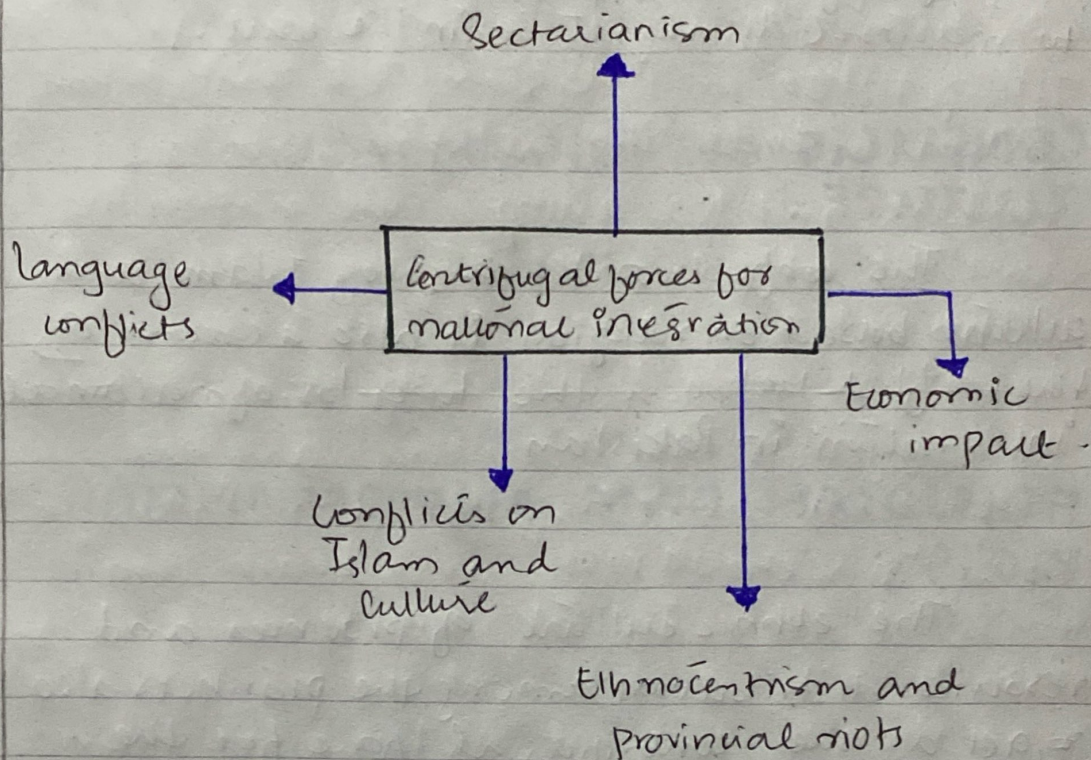 Sectarianism
Language
conflicts
Centrifugal forces for
national inegration
Economic
impact.
Conflicts on
Islam and
Culture
Ethnocentrism and
provincial riots